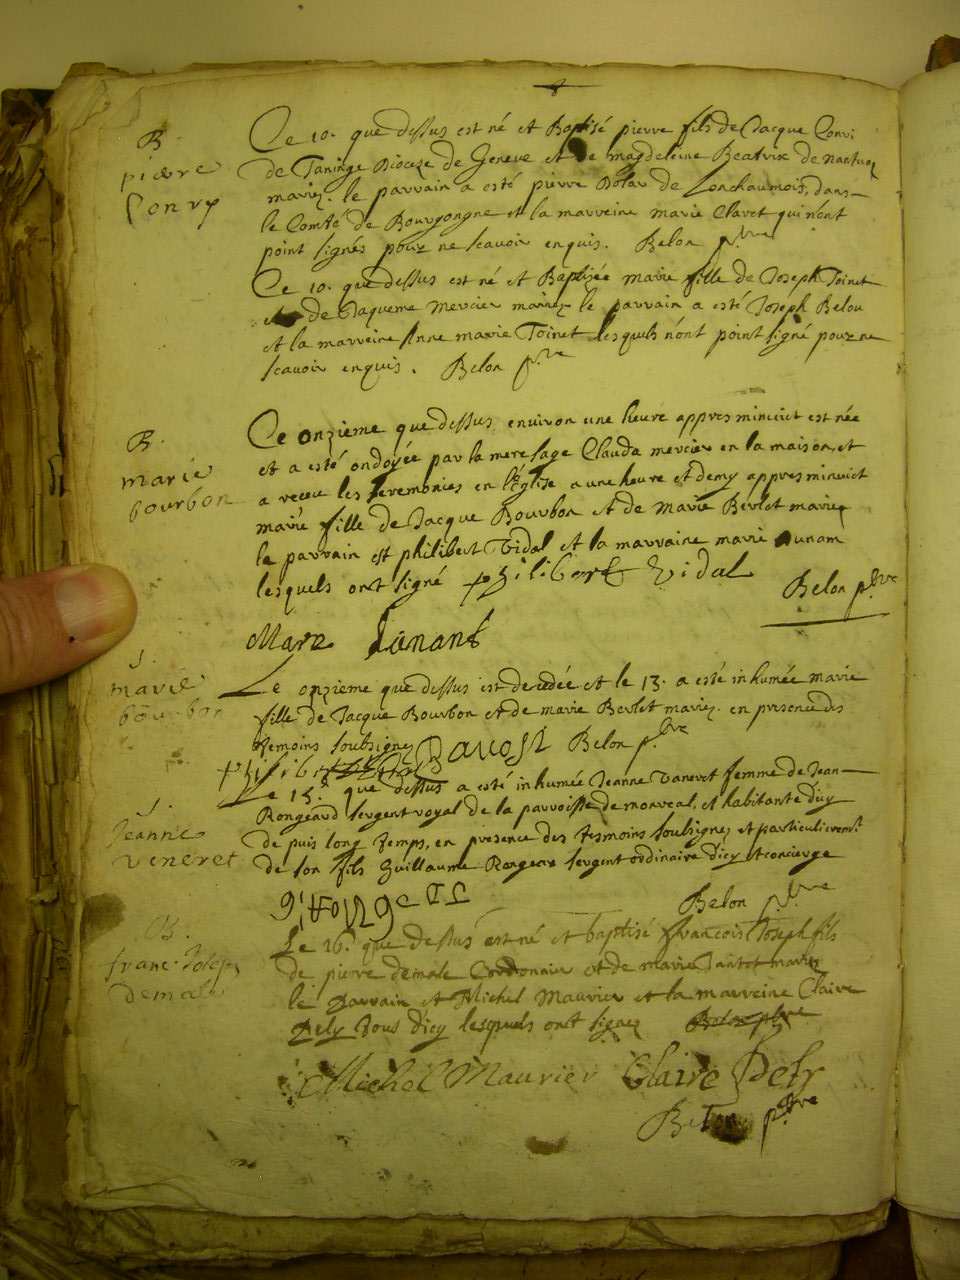 B.
pierre
Convy
Ce 10. que dessus est né et Baptisé pierre fils de Jacque Convi
de Taninge Diocese de Geneve et de magdeleine Beatrix de nantua
mariez. le parrain a esté pierre Bolar de Lonchaumois, dans
le Comté de Bourgongne et la marreine marie Claret qui n'ont
point signés pour ne scavoir enquis. Belon p.bre
Ce 10. que dessus est né et Baptisée marie fille de Joseph Toinet
et de Jaqueme Mercier mariez le parrain a esté Joseph Belou
et la marreine Anne marie Toinet lesquels n'ont point signé pour ne
scavoir enquis. Belon p.bre
B.
marie
bourbon
Ce onzieme que dessus environ une heure appres minuict est née
et a esté ondoyée par la mere sage Clauda mercier en la maison, et
a receu les ceremonies en l'Eglise a une heure et demy appres minuict
marie fille de Jacque Bourbon et de Marie Berlet mariez
le parrain est philibert Vidal et la marraine marie Dunam
lesquels ont signé philibert Vidal
Belon p.bre
Mare Dunant
S.
marie
bourbon
Le onzieme que dessus est decedée et le 13. a esté inhumée marie
fille de Jacque Bourbon et de marie Berlet mariez. en presence des
temoins soubsignez Davost Belon p.bre
S.
Jeanne
veneret
Le 15. que dessus a esté inhumée Jeanne Vaneret femme de Jean
Rongeard sergent royal de la parroisse de monreal, et habitante dicy
de puis long temps, en presence des tesmoins soubsignez et particulierem.t
de son fils Guillaume Rongear sergent ordinaire dicy et concierge
Belon p.bre
B.
franc. Joseph
demale
Le 26. que dessus est né et baptisé françois Joseph fils
de pierre demale Cordonnier et de marie Tantot mariez
le parrain est Michel Maurier et la marreine Claire
Dely Tous dicy lesquels ont signez Belon p.bre
Michel Maurier Claire Dely
Belon p.bre